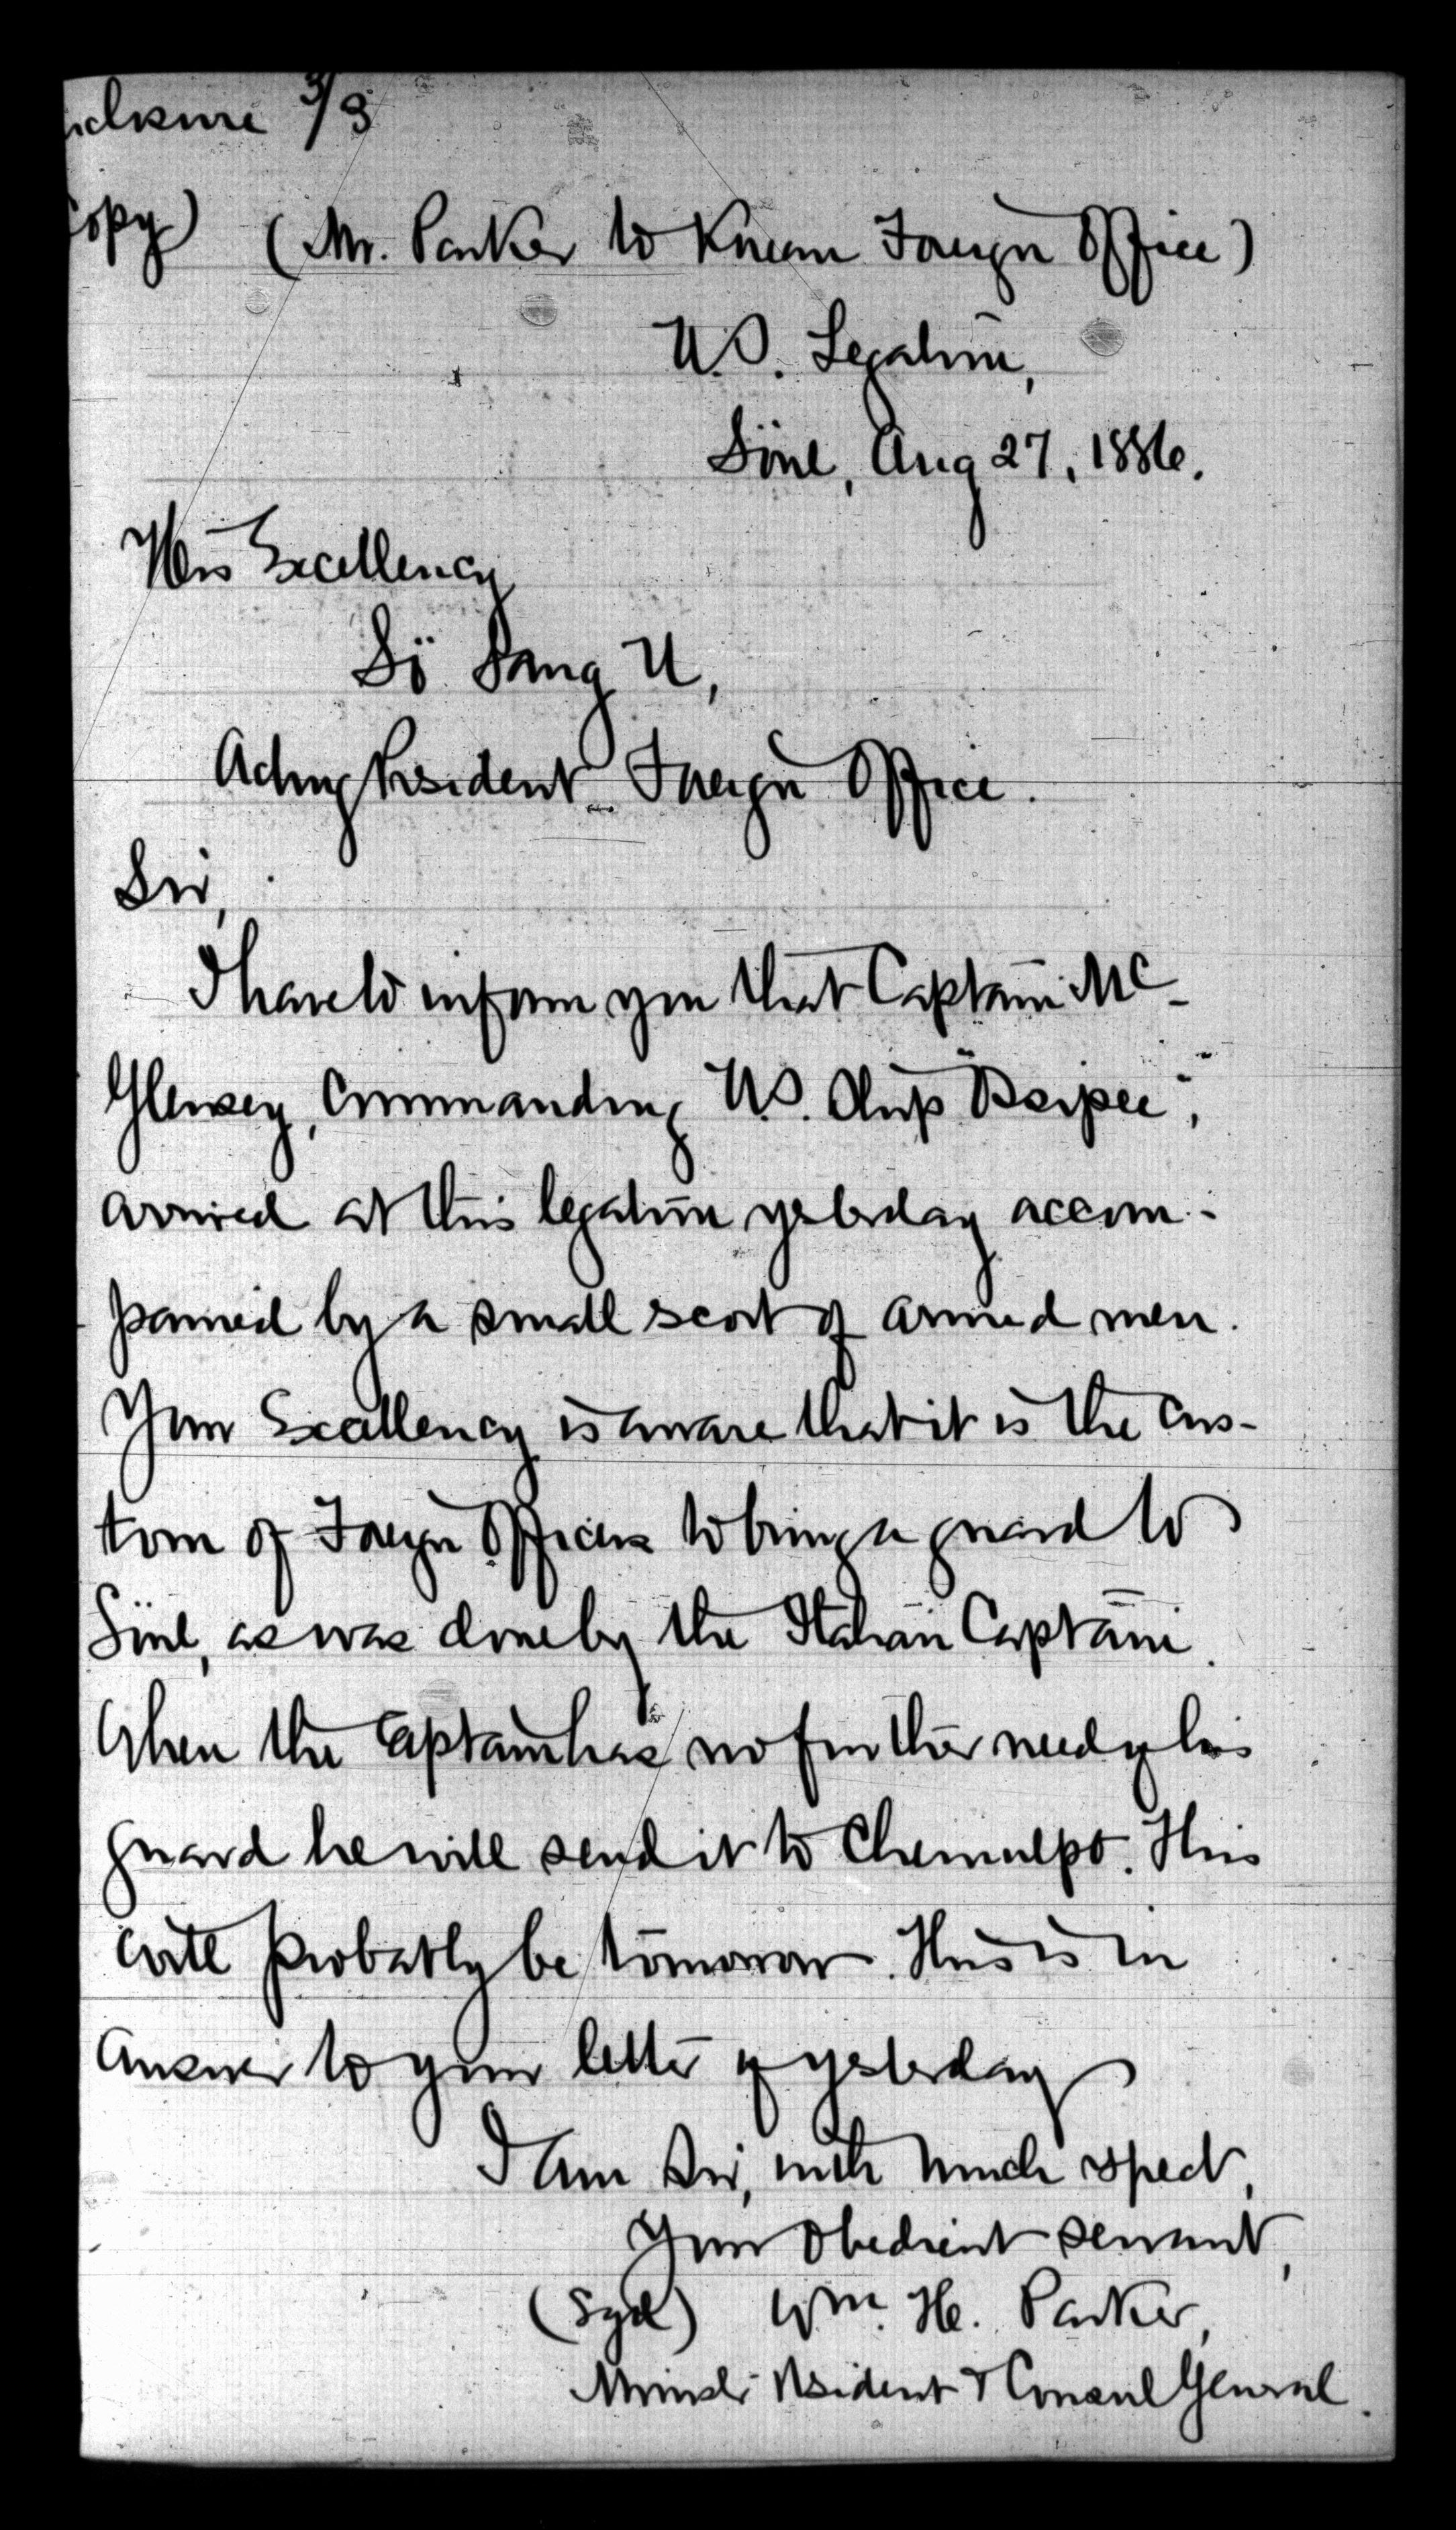 nclosure 3/3
Copy) (Mr. Parker to Korean Foreign Office)
U.S. Legation,
Söul, Aug 27, 1886.
His Excellency
Sö Sang U,
Acting President Foreign Office.
Sir,
I have to inform you that Captain Mc-
Glensey, Commanding U.S. Ship "Ossipee",
arrived at this legation yesterday accom-
panied by a small escort of armed men.
Your Excellency is aware that it is the cus-
tom of Foreign Officers to bring a guard to
Söul, as was done by the Italian Captain.
When the Captain has no further need of his
guard he will send it to Chemulpo. This
will probably be tomorrow. This is in
answer to your letter of yesterday
I am Sir, with much respect,
Your obedient servant,
(Sgd) Wm. H. Parker,
Minister Resident & Consul General.